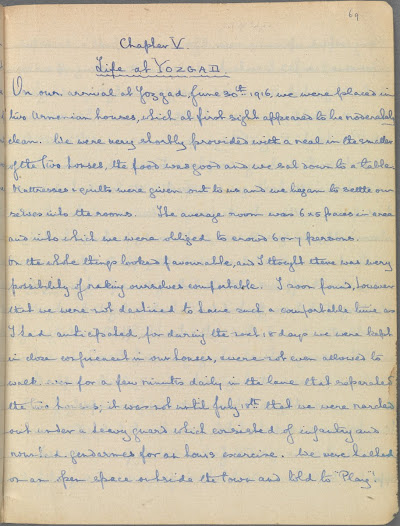 69
Chapter V.
Life at YOZGAD.
On our arrival at Yozgad, June 30th 1916, we were placed in
two Armenian houses, which at first sight appeared to be moderately
clean. We were very shortly provided with a meal in the smaller
of the two houses, the food was good and we sat down to a table.
Mattresses & quilts were given out to us and we began to settle our-
selves into the rooms. The average room was 6 x 5 paces in area
and into which we were obliged to crowd 6 or 7 persons.
On the whole things looked favourable, and I thought there was every
possibility of making ourselves comfortable. I soon found, however
that we were not destined to have such a comfortable time as
I had anticipated, for during the next 18 days we were kept
in close confinement in our houses, & were not even allowed to
walk for a few minutes daily in the lane that separated
the two houses; it was not until July 18th that we were marched
out under a heavy guard which consisted of infantry and
gendarmes for an hours exercise. We were halted
on an open space outside the town and told to "Play"!